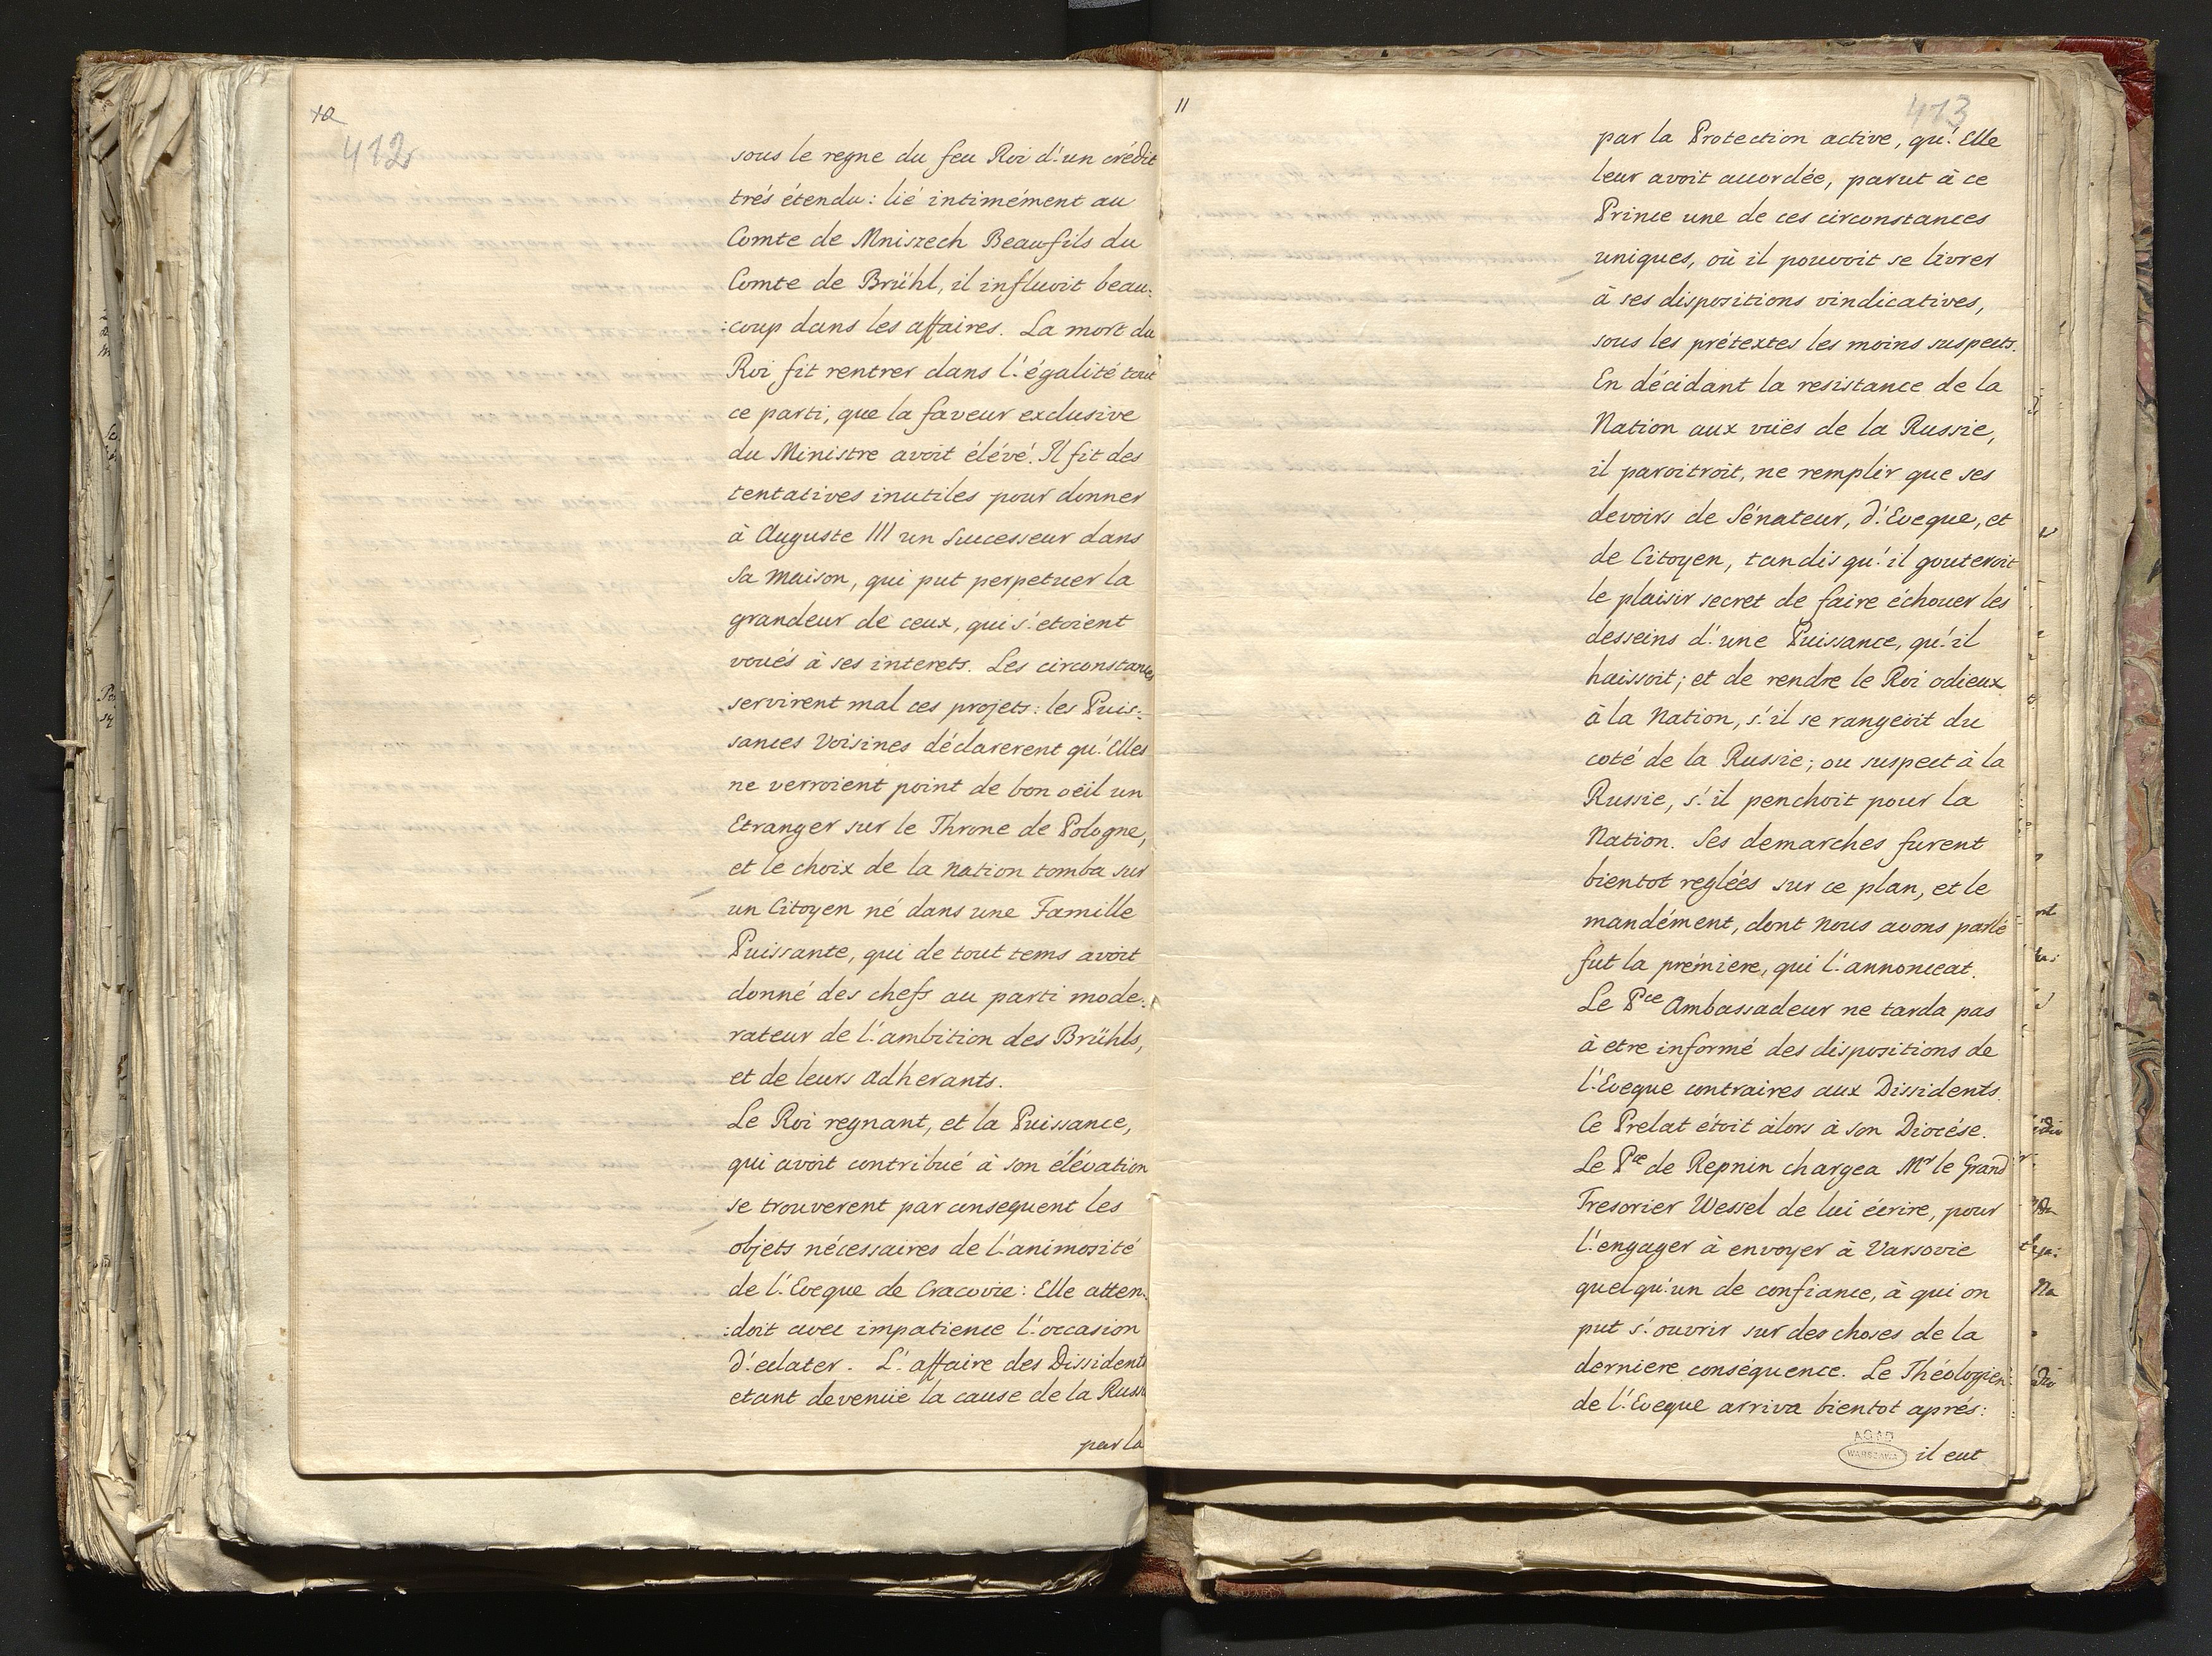 10
412
sous le regne du feu Roi d'un crédit
trés étendu: lié intimément au
Comte de Mniszech Beaufils du
Comte de Brühl, il influoit beau:
:coup dans les affaires. La mort du
Roi fit rentrer dans l'égalité tout
ce parti, que la faveur exclusive
du Ministre avoit élévé. Il fit des
tentatives inutiles pour donner
à Auguste III un Successeur dans
Sa Maison, qui put perpetuer la
grandeur de ceux, qui s'etoient
voués à ses interets. Les circonstances
servirent mal ces projets: les Puis:
sances Voisines déclarerent qu'Elles
ne verroient point de bon oëil un
Etranger sur le Throne de Pologne,
et le choix de la Nation tomba sur
un Citoyen né dans une Famille
Puissante, qui de tout tems avoit
donné des chefs au parti mode:
rateur de l'ambition des Brühls,
et de leurs adhérants.
Le Roi regnant, et la Puissance,
qui avoit contribué à son élévation
se trouverent par consequent les
objets nécessaires de l'animosité
de l'Eveque de Cracovie: Elle atten:
:doit avec impatience l'occasion
d'eclater. L'affaire des Dissidents
etant devenüe la cause de la Russ
par la
11
413
par la Protection active, qu'Elle
leur avoit accordée, parut à ce
Prince une de ces circonstances
uniques, où il pouvoit se livrer
à ses dispositions vindicatives,
sous les prétextes les moins suspects.
En décidant la resistance de la
Nation aux vües de la Russie,
il paroitroit, ne remplir que ses
devoirs de Sénateur, d'Eveque, et
de Citoyen, tandis qu'il gouteroit
le plaisir secret de faire échouer les
desseins d'une Puissance, qu'il
haissoit; et de rendre le Roi odieux
à la Nation, s'il se rangeoit du
coté de la Russie; ou suspect à la
Russie, s'il penchoit pour la
Nation. Ses demarches furent
bientot reglées sur ce plan, et le
mandément, dont Nous avons parlé
fut la prémiere, qui l'annonceat.
Le Pce Ambassadeur ne tarda pas
à etre informé des dispositions de
l'Eveque contraires aux Dissidents.
Ce Prelat étoit àlors à son Diocése.
Le Pce de Repnin chargea Mr le Grand
Tresorier Wessel de lui écrire, pour
l'engager à envoyer à Varsovie
quelqu'un de confiance, à qui on
put s'ouvrir sur des choses de la
derniere conséquence. Le Théologien
de l'Eveque arriva bientot aprés:
AGAD
WARSZAWA
il eut